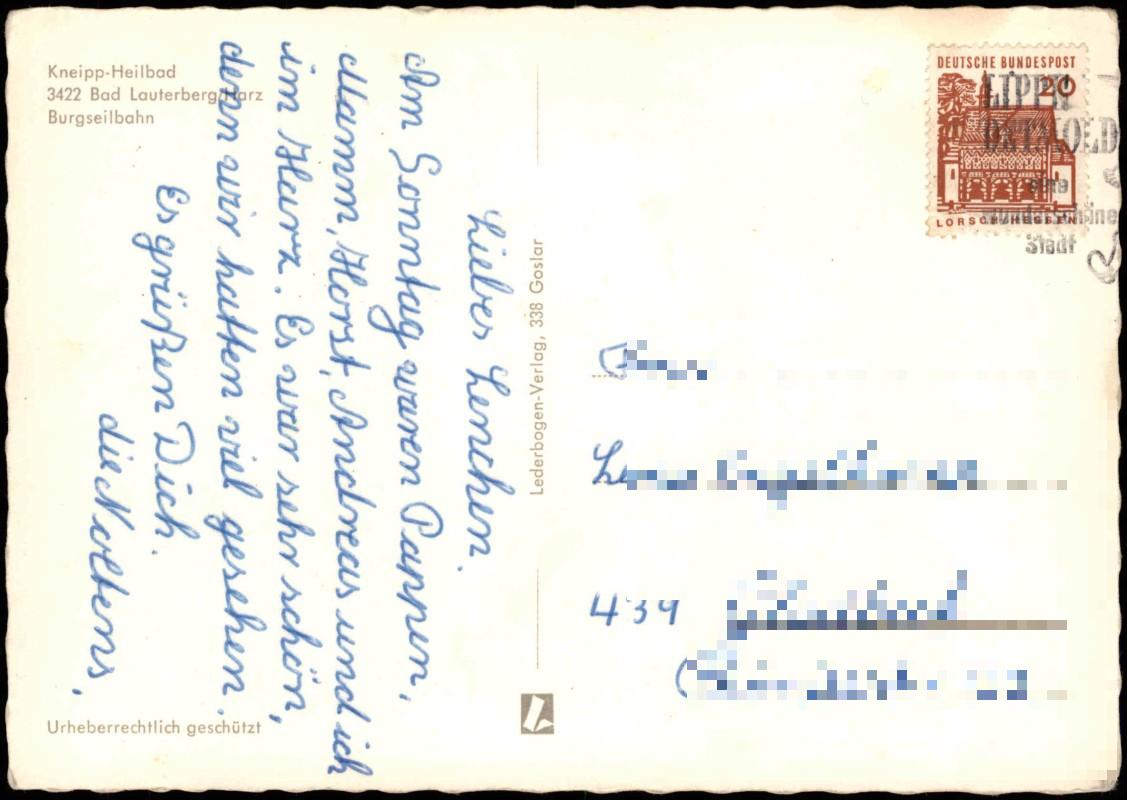 Kneipp-Heilbad
3422 Bad Lauterberg/Harz
Burgseilbahn
Liebes Lenchen.
Am Sonntag waren Pappen,
Mamm, Horst, Andreas und ich
im Harz. Es war sehr schön,
denn wir hatten viel gesehen.
Es grüßen Dich.
die Noltens,
Urheberrechtlich geschützt
Lederbogen-Verlag, 338 Goslar
DEUTSCHE BUNDESPOST
20
LORSCH/HESSEN
LIPPE
DETMOLD
eine
wunderschöne
Stadt
439